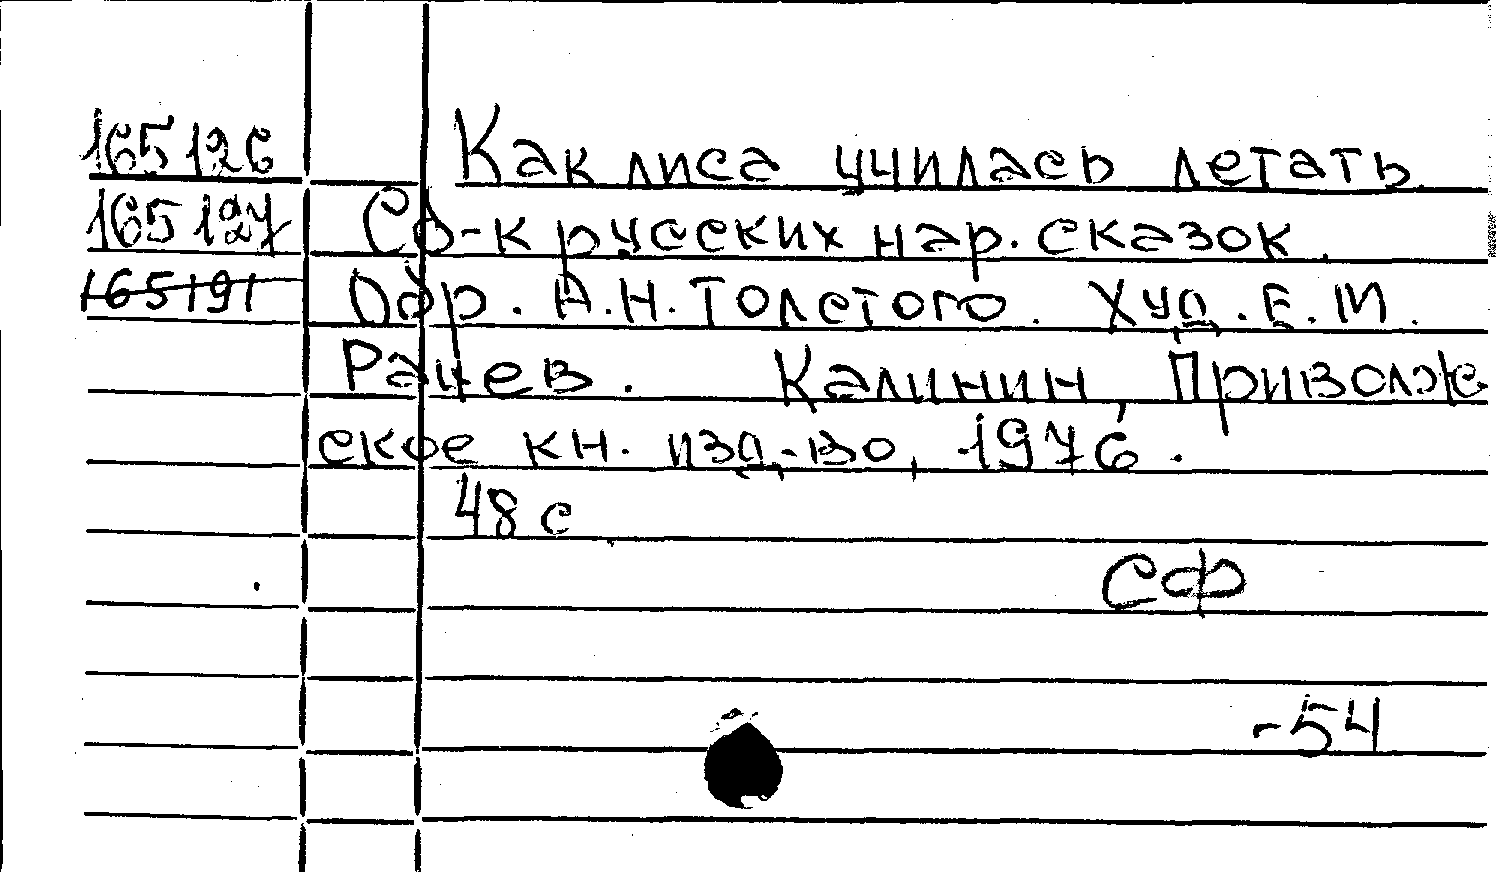 165126 Как лиса училась летать.
165127 Сб-к русских нар. сказок.
165191 Обр. А.Н. Толстого. Худ. Е. М.
Рачев. Калинин, Приволжс
ское кн. изд-во, 1976.
48 с
СФ
-54